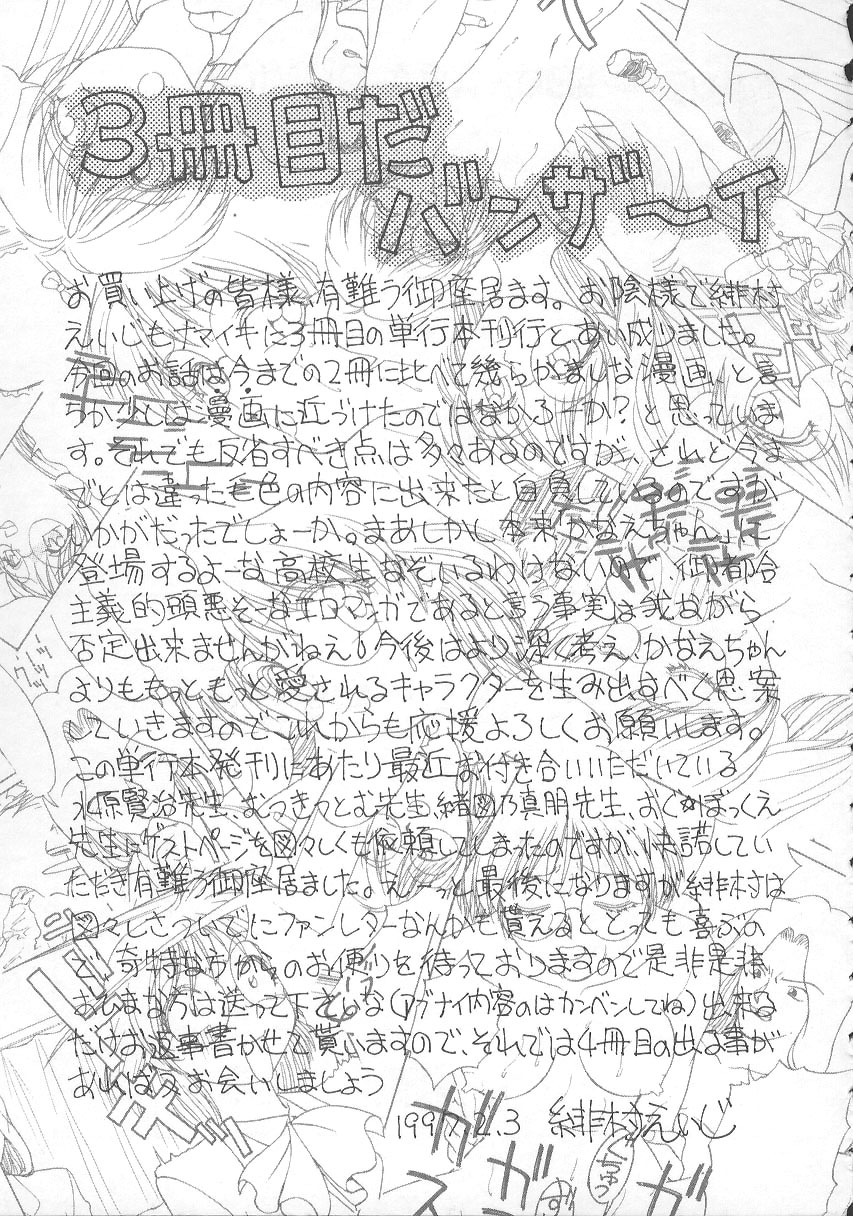 3冊目だ
バンザ〜イ
お買い上げの皆様、有難う御座居ます。お陰様で緋村
えいじもナマイキに3冊目の単行本刊行とあい成りました。
今回のお話は今までの2冊に比べて幾らかましな漫画、と言
うか少しは漫画に近づけたのではなかろーか?と思っていま
す。それでも反省すべき点は多々あるのですが、されど今ま
でとは違った毛色の内容に出来たと自負しているのですが
いかがだったでしょーか。まあしかし本来「かなえちゃん」に
登場するよーな高校生なぞいるわけないので、御都合
主義的頭悪そーなエロマンガであると言う事実は我ながら
否定出来ませんがねえ!今後はより深く考え、かなえちゃん
よりももっともっと愛されるキャラクターを生み出すべく思案
していきますのでこれからも応援よろしくお願いします。
この単行本発刊にあたり最近お付き合いいただいている
水原賢治先生、むつきつとむ先生、緒図乃真朋先生、おぐ☆ぼっくえ
先生にゲストページを図々しくも依頼してしまったのですが、快諾してい
ただき有難う御座居ました。え〜っと最後になりますが緋村は
図々しさついでにファンレターなんかも貰えるととっても喜ぶの
で、奇特な方からのお便りを待っておりますので是非是非
おひまなら送って下さいな(アブナイ内容のはカンベンしてね)出来る
だけお返事書かせて貰いますので、それでは4冊目の出る事が
あれば又お会いしましょう
1997.2.3 緋村えいじ
ガ
ガ
ガ
ス
くちゅう
グッ